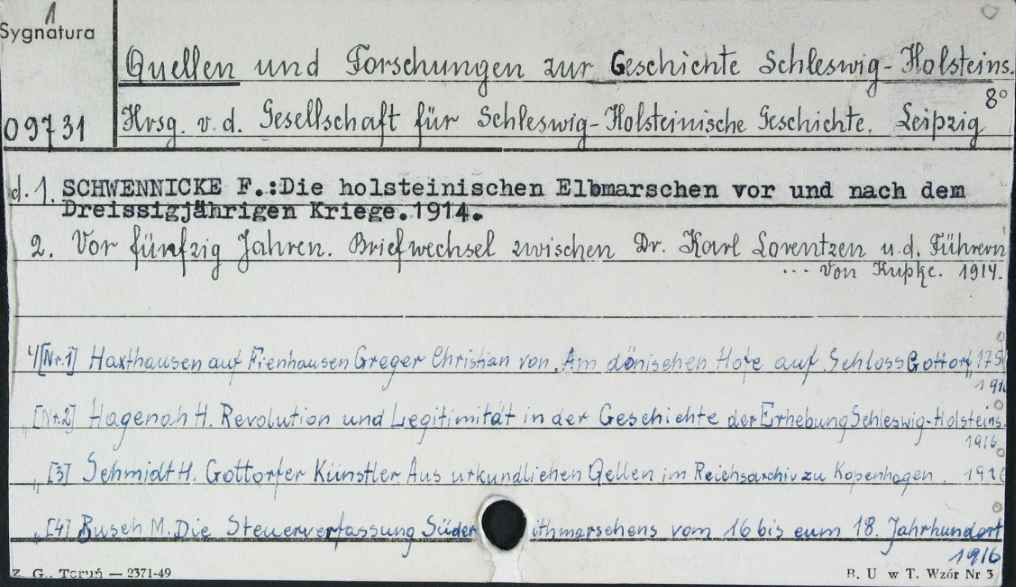 1
Sygnatura
Quellen und Forschungen zur Geschichte Schleswig-Holsteins.
8°
09731 Hrsg. v. d. Gesellschaft für Schleswig-Holsteinische Geschichte. Leipzig
d. 1. SCHWENNICKE F.:Die holsteinischen Elbmarschen vor und nach dem
Dreissigjährigen Kriege.1914.
2. Vor fünfzig Jahren. Briefwechsel zwischen Dr. Karl Lorentzen u.d. Führern
... von Kupke. 1914.
[Nr.1] Haxthausen auf Fienhausen Greger Christian von. Am dänischen Hofe auf Schloss Gottorf
[Nr.2] Hagenah H. Revolution und Legitimität in der Geschichte der Erhebung Schleswig-Holsteins.
1916
„ [3] Schmidt H. Gottorfer Künstler Aus urkundlichen Qellen im Reichsarchiv zu Kopenhagen.
„ [4] Busch M. Die Steuerverfassung Süder ithmarschens vom 16 bis eum 18. Jahrhundert
1916
Z. G., Toruń — 2371-49 B. U w T. Wzór Nr 3